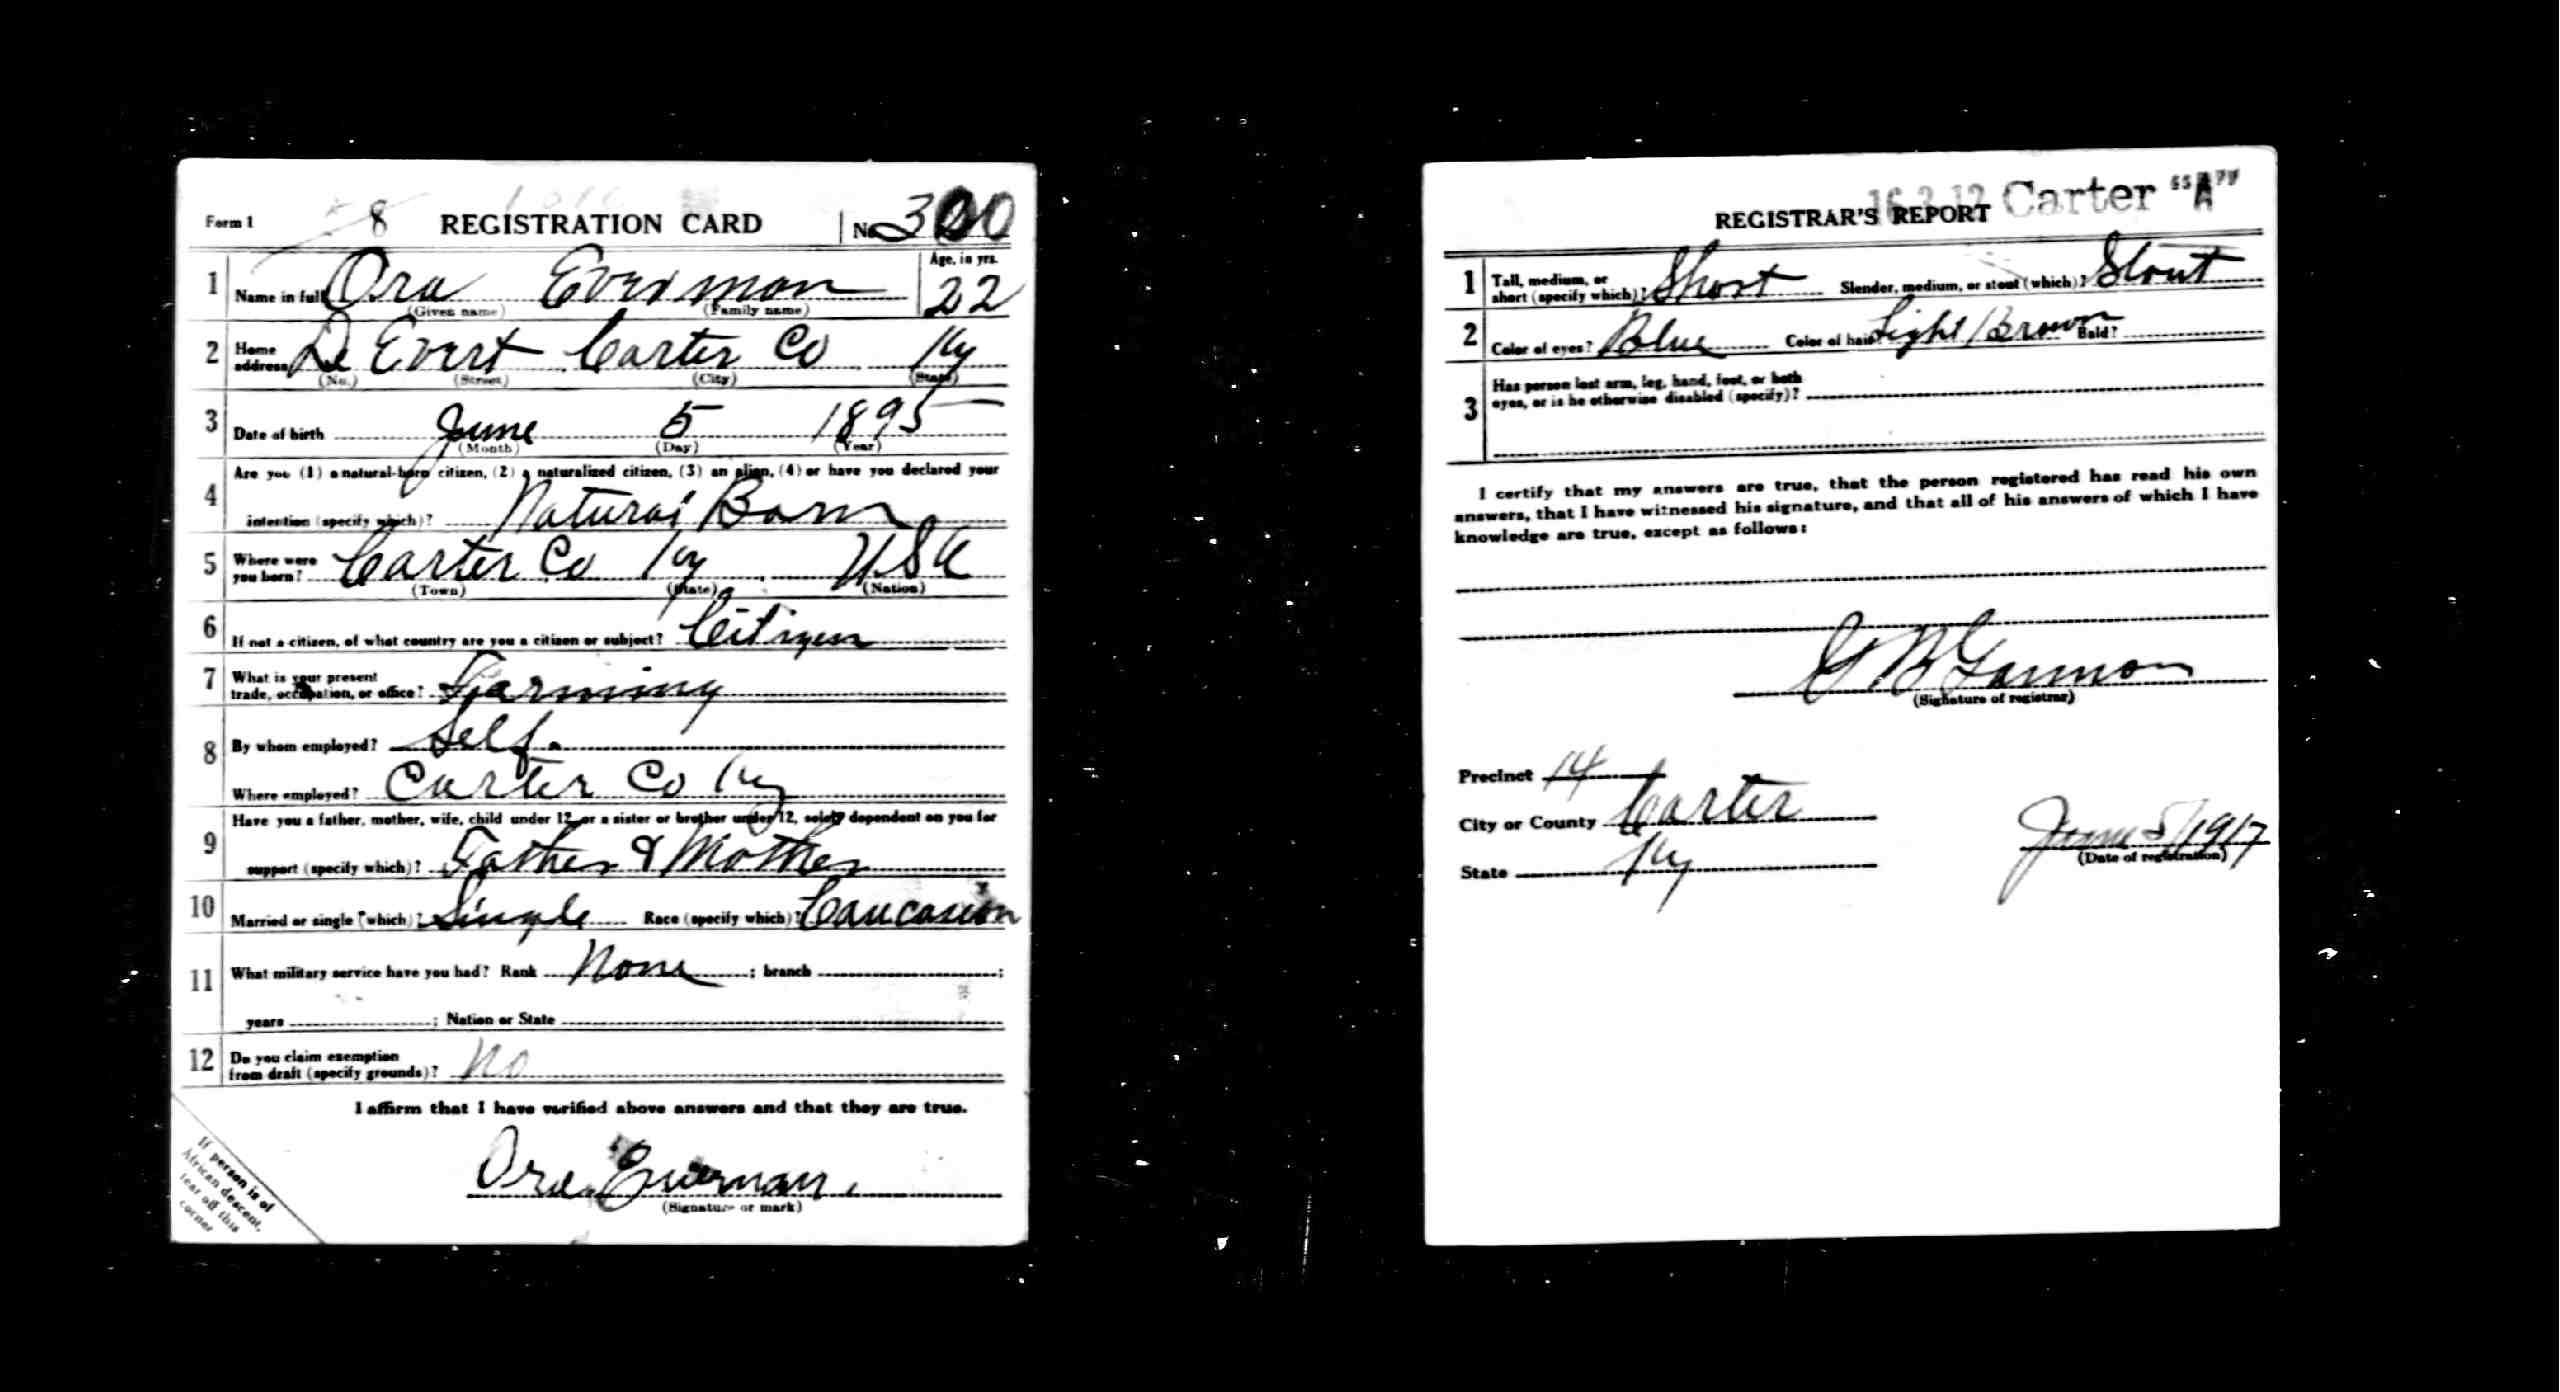 Form 1 8 REGISTRATION CARD No 300
1 Name in full Ora Everman Age, in yrs. 22
(Given name) (Family name)
2 Home address De Evert Carter Co Ky
(No.) (Street) (City) (State)
3 Date of birth June 5 1895
(Month) (Day) (Year)
4 Are you (1) a natural-born citizen, (2) a naturalized citizen, (3) an alien, (4) or have you declared your
intention (specify which)? Natural Born
5 Where were you born? Carter Co Ky USA
(Town) (State) (Nation)
6 If not a citizen, of what country are you a citizen or subject? Citizen
7 What is your present
trade, occupation, or office? Farming
8 By whom employed? Self.
Where employed? Carter Co Ky
9 Have you a father, mother, wife, child under 12, or a sister or brother under 12, solely dependent on you for
support (specify which)? Father & Mother
10 Married or single (which)? Single Race (specify which)? Caucasion
11 What military service have you had? Rank None ; branch ;
years ; Nation or State
12 Do you claim exemption
from draft (specify grounds)? No
I affirm that I have verified above answers and that they are true.
Ora Everman.
(Signature or mark)
If person is of
African descent,
tear off this
corner
16-3-12 Carter "A"
REGISTRAR'S REPORT
1 Tall, medium, or
short (specify which)? Short Slender, medium, or stout (which)? Stout
2 Color of eyes? Blue Color of hair? Light Brown Bald?
3 Has person lost arm, leg, hand, foot, or both
eyes, or is he otherwise disabled (specify)?
I certify that my answers are true, that the person registered has read his own
answers, that I have witnessed his signature, and that all of his answers of which I have
knowledge are true, except as follows:
G B Gannon
(Signature of registrar)
Precinct 14
City or County Carter
State Ky
June 5/1917
(Date of registration)